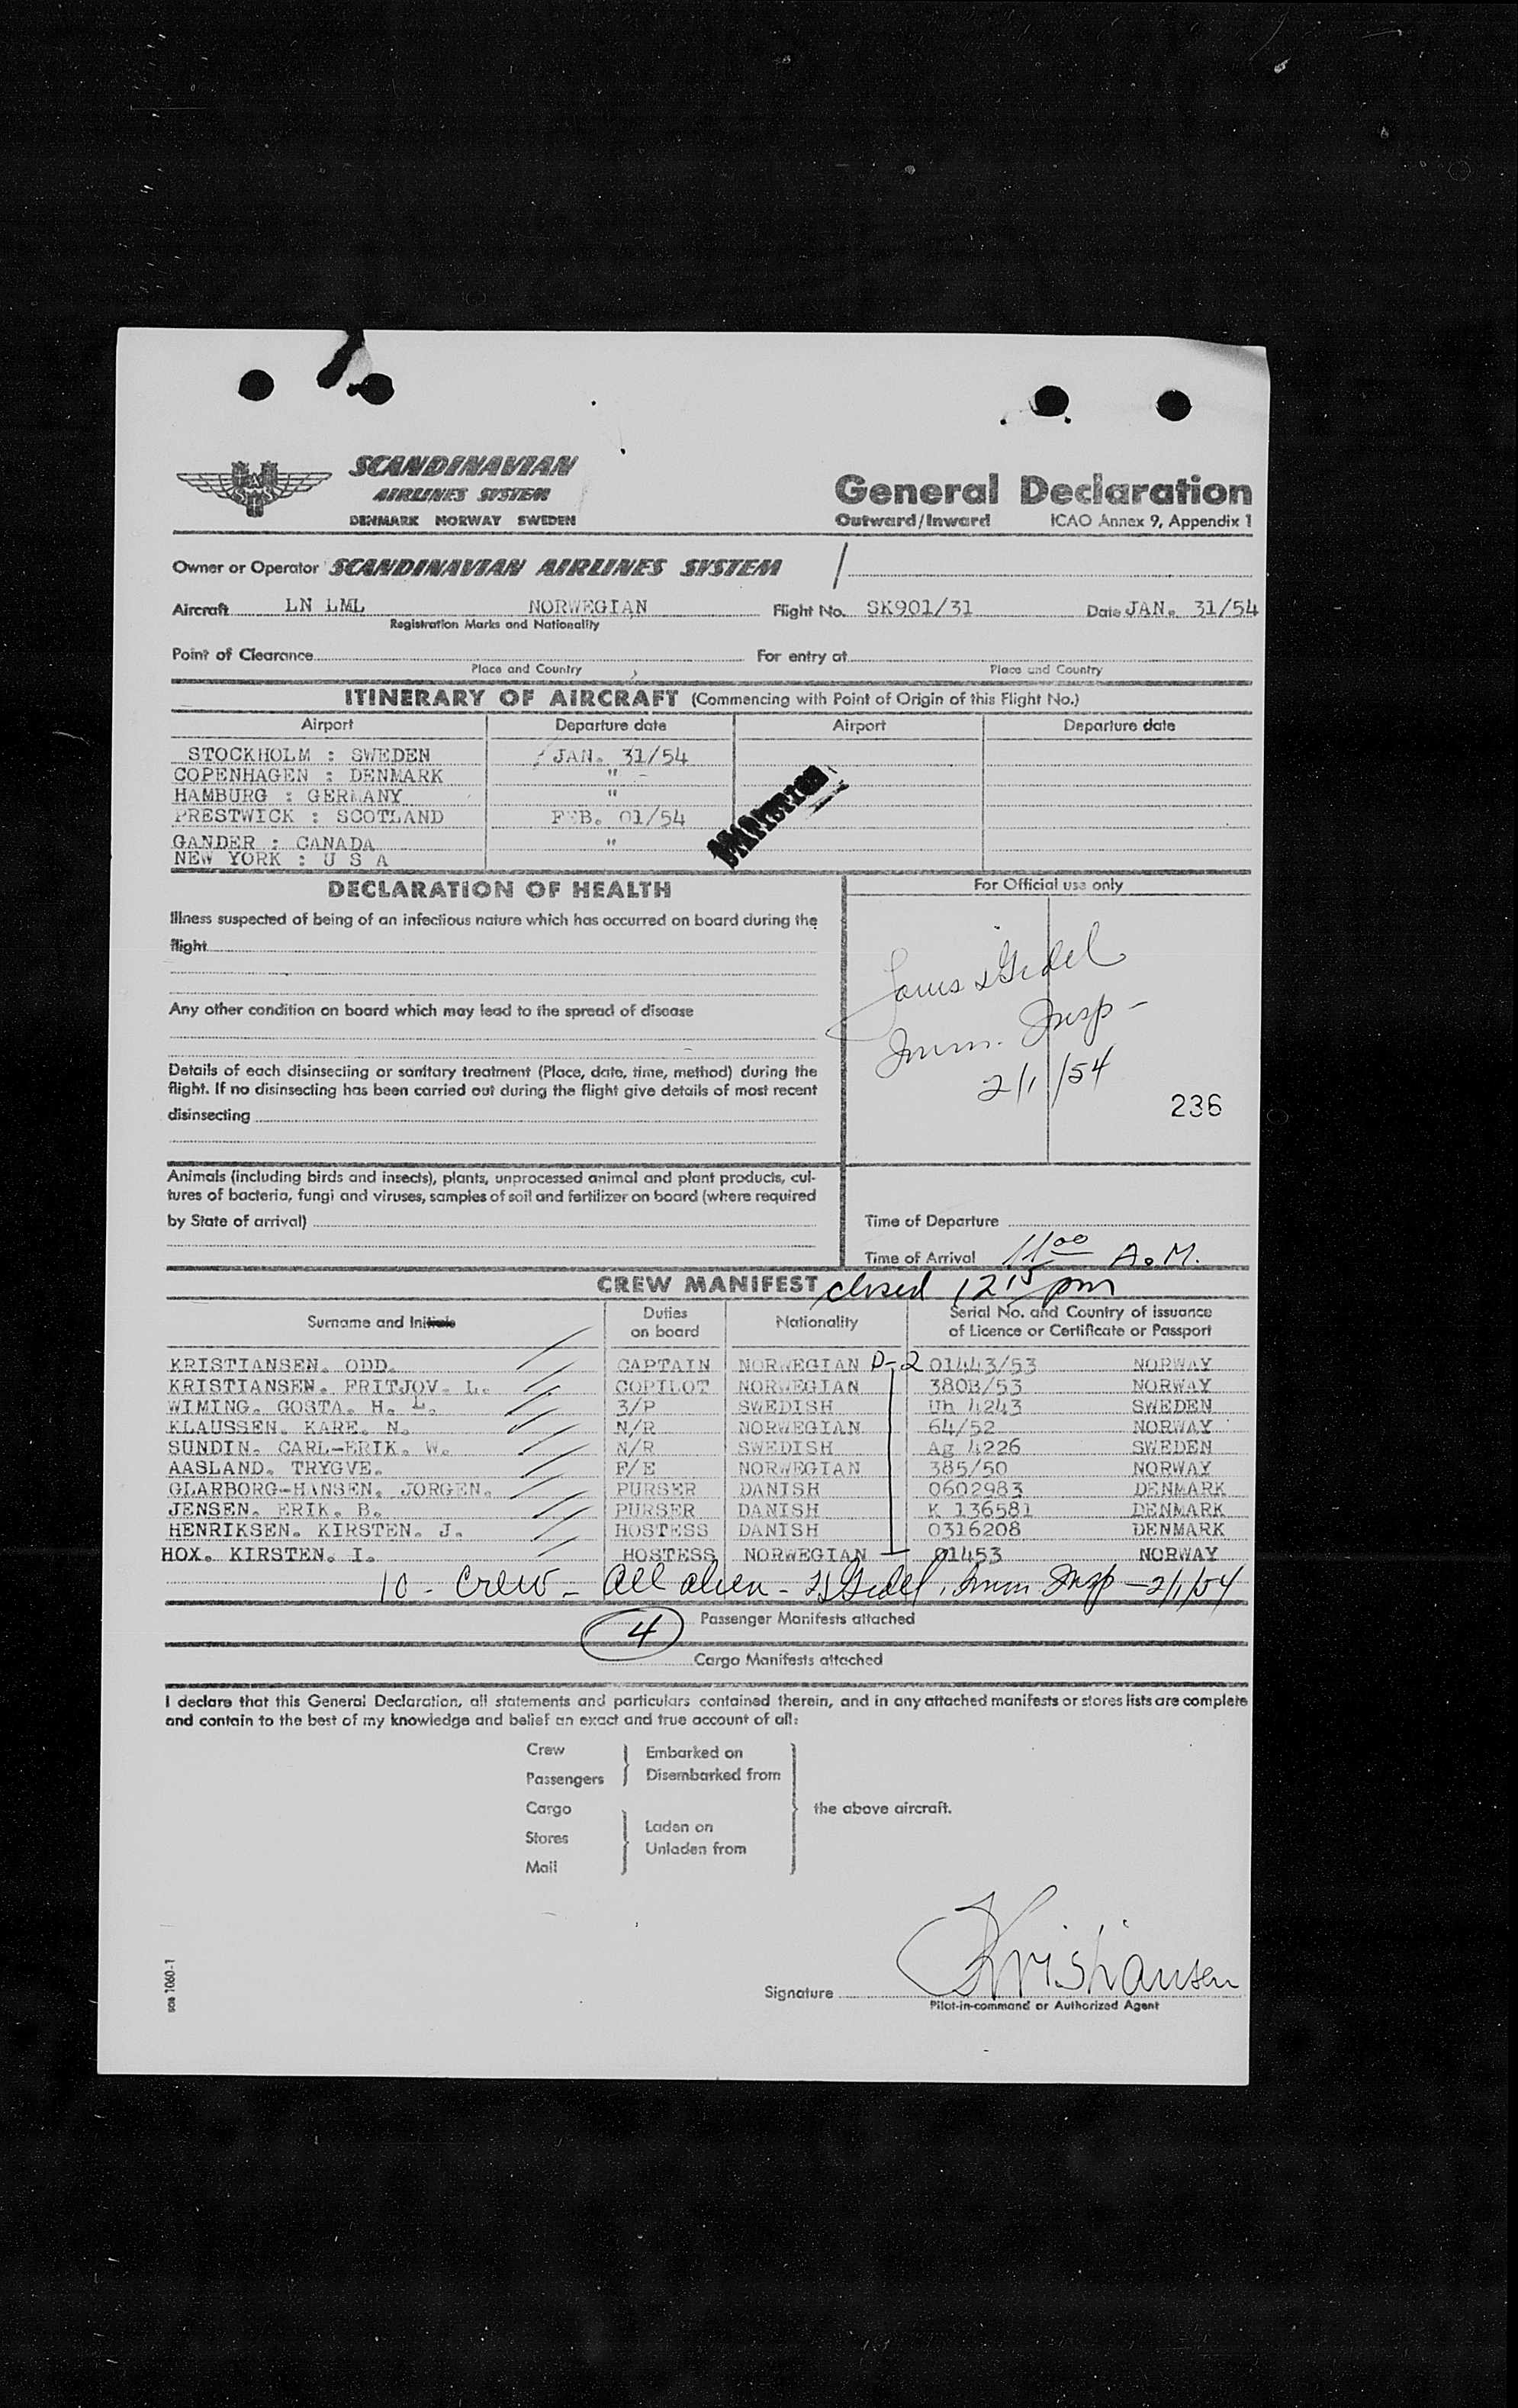 SCANDINAVIAN
AIRLINES SYSTEM
DENMARK NORWAY SWEDEN
General Declaration
Outward/Inward ICAO Annex 9, Appendix 1
Owner or Operator SCANDINAVIAN AIRLINES SYSTEM
Aircraft LN LML NORWEGIAN Flight No. SK901/31 Date JAN. 31/54
Registration Marks and Nationality
Point of Clearance For entry at
Place and Country Place and Country
ITINERARY OF AIRCRAFT (Commencing with Point of Origin of this Flight No.)
Airport Departure date Airport Departure date
STOCKHOLM : SWEDEN JAN. 31/54
COPENHAGEN : DENMARK " -
HAMBURG : GERMANY "
PRESTWICK : SCOTLAND FEB. 01/54
GANDER : CANADA "
NEW YORK : U S A
DECLARATION OF HEALTH
For Official use only
Illness suspected of being of an infectious nature which has occurred on board during the
flight
Any other condition on board which may lead to the spread of disease
Details of each disinsecting or sanitary treatment (Place, date, time, method) during the
flight. If no disinsecting has been carried out during the flight give details of most recent
disinsecting
Imm. Insp -
2/1/54
236
Animals (including birds and insects), plants, unprocessed animal and plant products, cul-
tures of bacteria, fungi and viruses, samples of soil and fertilizer on board (where required
by State of arrival)
Time of Departure
Time of Arrival 11 00 A.M.
CREW MANIFEST closed 12 15 pm
Surname and Initials Duties on board Nationality Serial No. and Country of issuance of Licence or Certificate or Passport
KRISTIANSEN. ODD. CAPTAIN NORWEGIAN D-2 01443/53 NORWAY
KRISTIANSEN. FRITJOV. L. COPILOT NORWEGIAN 380B/53 NORWAY
WIMING. GOSTA. H. L. 3/P SWEDISH Uh 4243 SWEDEN
KLAUSSEN. KARE. N. N/R NORWEGIAN 64/52 NORWAY
SUNDIN. CARL-ERIK. W. N/R SWEDISH Ag 4226 SWEDEN
AASLAND. TRYGVE. F/E NORWEGIAN 385/50 NORWAY
GLARBORG-HANSEN. JORGEN. PURSER DANISH 0602983 DENMARK
JENSEN. ERIK. B. PURSER DANISH K 136581 DENMARK
HENRIKSEN. KIRSTEN. J. HOSTESS DANISH 0316208 DENMARK
HOX. KIRSTEN. I. HOSTESS NORWEGIAN 01453 NORWAY
10 - Crew - All alien - Imm Insp - 2/1/54
4 Passenger Manifests attached
Cargo Manifests attached
I declare that this General Declaration, all statements and particulars contained therein, and in any attached manifests or stores lists are complete
and contain to the best of my knowledge and belief an exact and true account of all:
Crew Embarked on
Passengers Disembarked from
Cargo the above aircraft.
Stores Laden on
Unladen from
Mail
Signature Kristiansen
Pilot-in-command or Authorized Agent
sas 1060-1